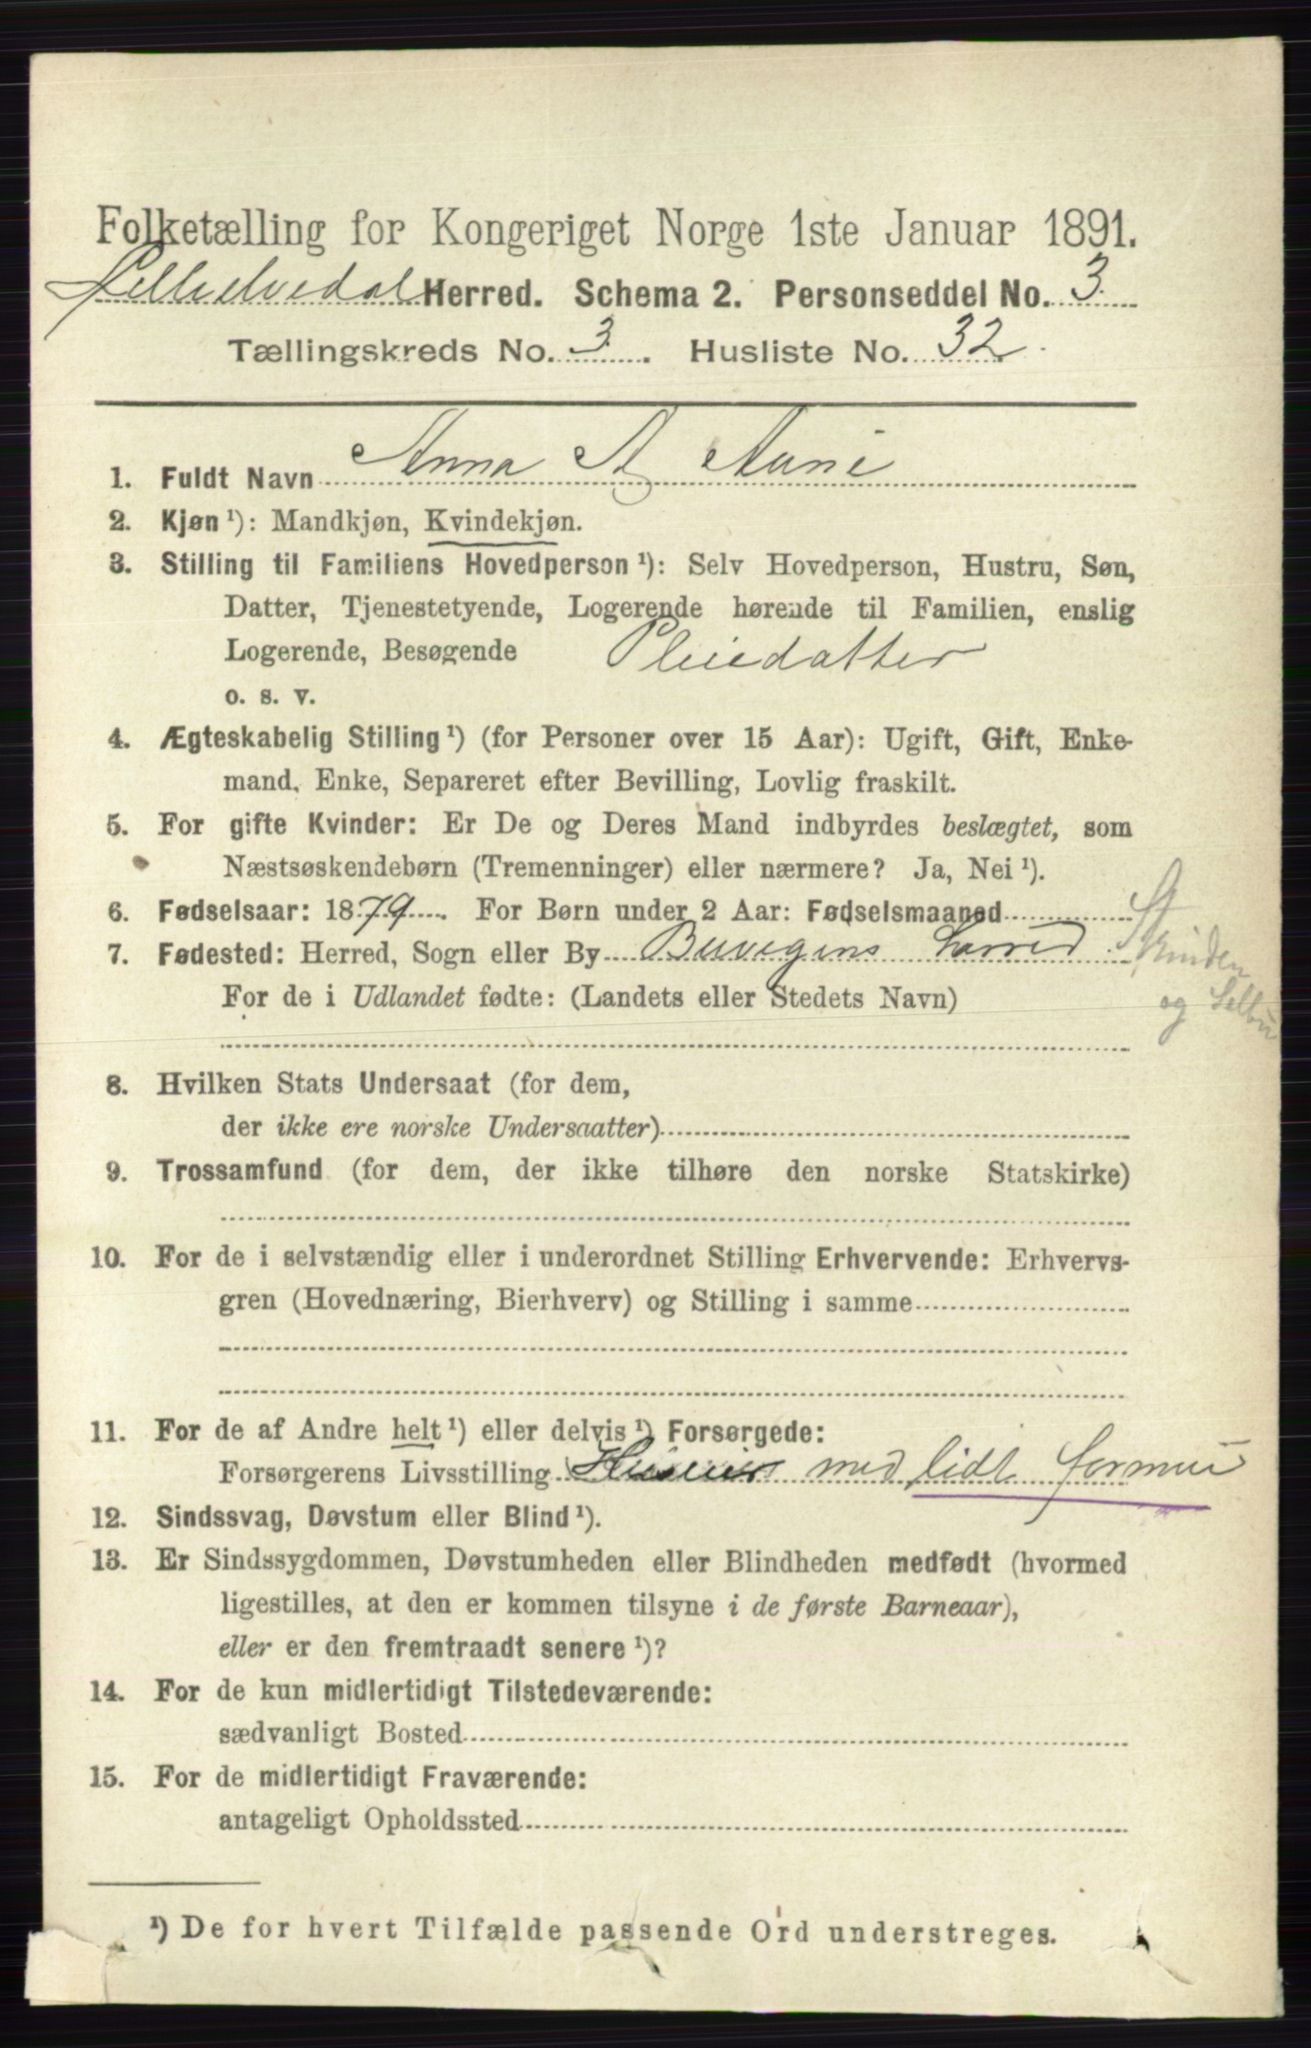 Folketælling for Kongeriget Norge 1ste Januar 1891.
Lilleelvedal Herred. Schema 2. Personseddel No. 3.
Tællingskreds No. 3. Husliste No. 32.
1. Fuldt Navn Anna A. Aune
2. Kjøn ¹): Mandkjøn, Kvindekjøn.
3. Stilling til Familiens Hovedperson ¹): Selv Hovedperson, Hustru, Søn,
Datter, Tjenestetyende, Logerende hørende til Familien, enslig
Logerende, Besøgende Pleiedatter
o. s. v.
4. Ægteskabelig Stilling ¹) (for Personer over 15 Aar): Ugift, Gift, Enke-
mand, Enke, Separeret efter Bevilling, Lovlig fraskilt.
5. For gifte Kvinder: Er De og Deres Mand indbyrdes beslægtet, som
Næstsøskendebørn (Tremenninger) eller nærmere? Ja, Nei ¹).
6. Fødselsaar: 1879. For Børn under 2 Aar: Fødselsmaaned
7. Fødested: Herred, Sogn eller By
Strinden
og Selbu
For de i Udlandet fødte: (Landets eller Stedets Navn)
8. Hvilken Stats Undersaat (for dem,
der ikke ere norske Undersaatter)
9. Trossamfund (for dem, der ikke tilhøre den norske Statskirke)
10. For de i selvstændig eller i underordnet Stilling Erhvervende: Erhvervs-
gren (Hovednæring, Bierhverv) og Stilling i samme
11. For de af Andre helt ¹) eller delvis ¹) Forsørgede:
Forsørgerens Livsstilling med lidt formue
12. Sindssvag, Døvstum eller Blind ¹).
13. Er Sindssygdommen, Døvstumheden eller Blindheden medfødt (hvormed
ligestilles, at den er kommen tilsyne i de første Barneaar),
eller er den fremtraadt senere ¹)?
14. For de kun midlertidigt Tilstedeværende:
sædvanligt Bosted
15. For de midlertidigt Fraværende:
antageligt Opholdssted
¹) De for hvert Tilfælde passende Ord understreges.